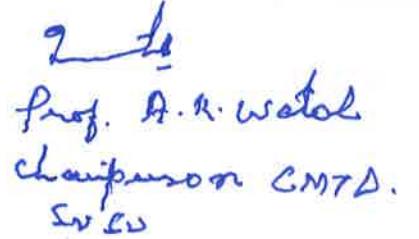 Prof. A.K. Watal
Chairperson CMTD.